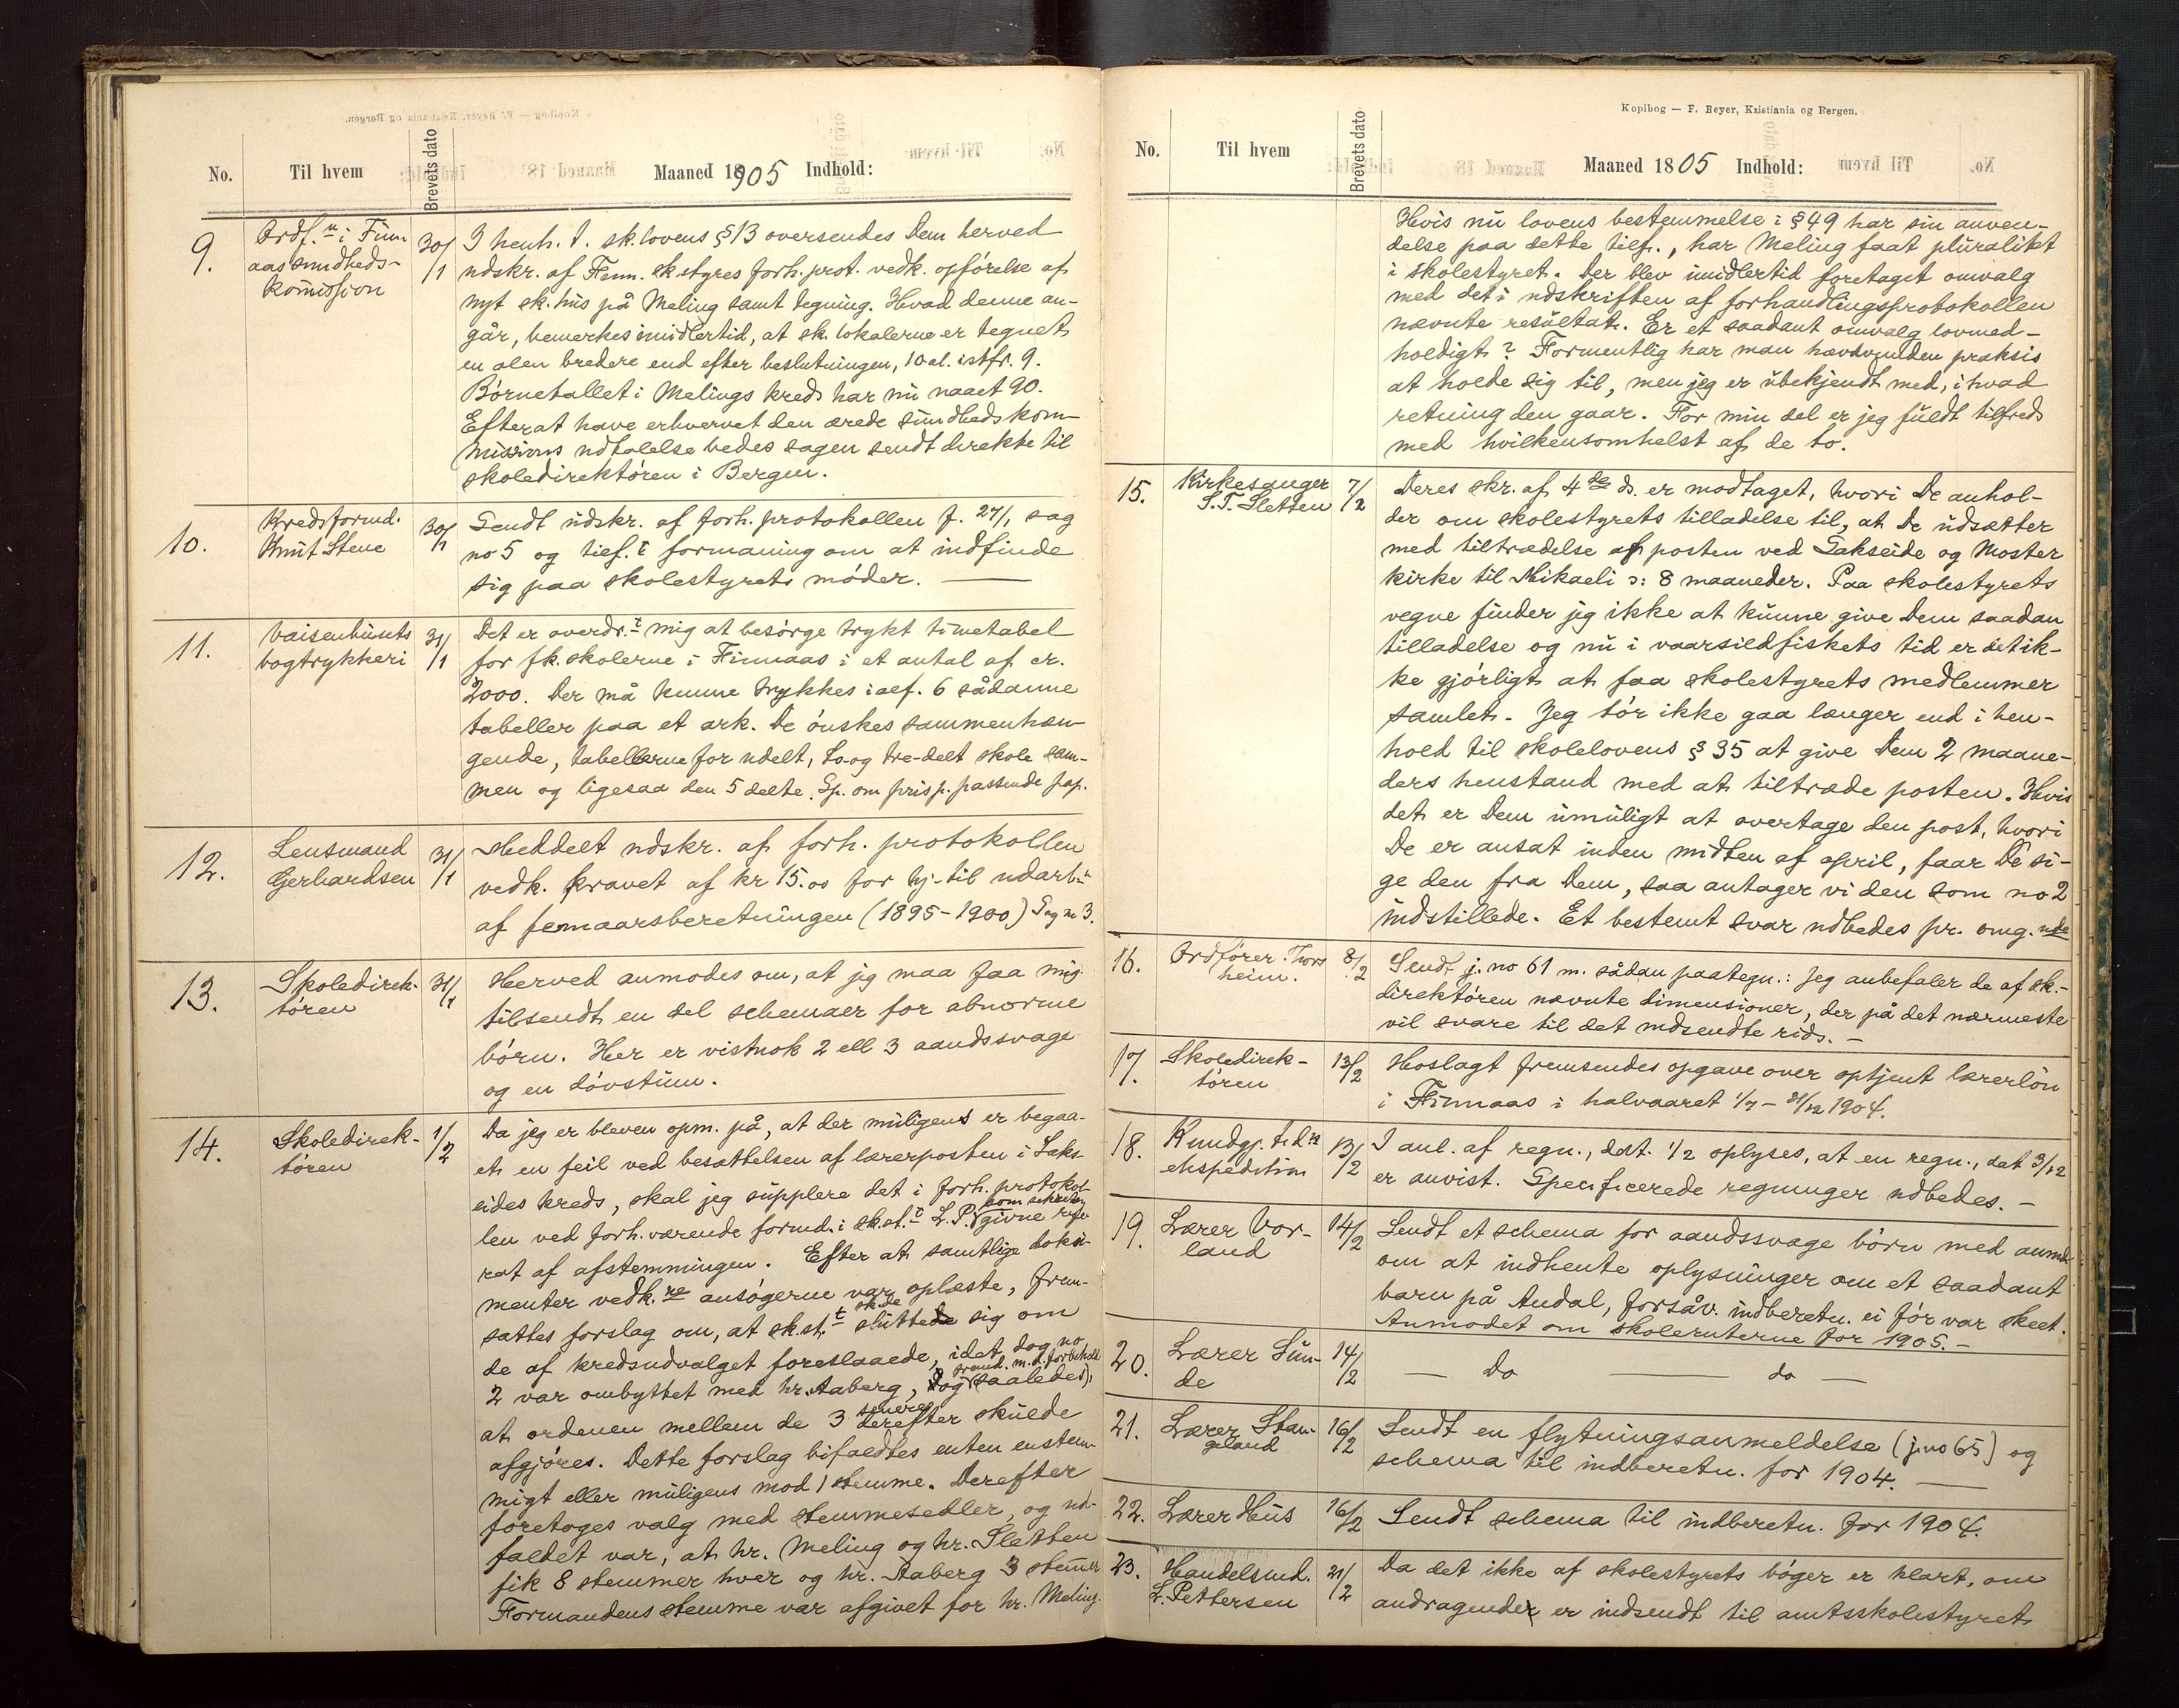 No. Til hvem Brevets dato Maaned 1905 Indhold:
9. Ordf.n i Finn 30/1 I henh. t. sk.lovens § 13 oversendes Dem herved
aas sundheds-
komission
udskr. af Finn. sk.styres forh. prot. vedk. opførelse af
nyt sk. hus på Meling samt tegning. Hvad denne an-
går, bemerkes imidlertid, at sk. lokalerne er tegnet
en alen bredere end efter beslutningen, 10 al. istf. 9.
Børnetallet i Melings kreds har nu naaet 90.
Efterat have erhvervet den ærede sundhedskom-
missions udtalelse bedes sagen sendt direkte til
skoledirektøren i Bergen.
10. Kredsformd. Knut Stene 30/1 Sendt udskr. af forh. protokollen f. 27/1, sag
no 5 og tief. t formaning om at indfinde
sig paa skolestyrets møder. —
11. Vaisenhusets bogtrykkeri 31/1 Det er overdr. t mig at besørge trykt timetabel
for fk. skolerne i Finnaas i et antal af cr.
2000. Der må kunne trykkes ialf. 6 sådanne
tabeller paa et ark. De ønskes sammenhæn-
gende, tabellerne for udelt, to- og tre-delt skole sam-
men og ligesaa den 5 delte. Sp. om pris p. passende pap.
12. Lensmand Gerhardsen 31/1 Meddelt udskr. af forh. protokollen
vedk. kravet af kr 15.00 for hj. til udarb.n
af femaarsberetningen (1895-1900) Sag no 3.
13. Skoledirek-tøren 31/1 Herved anmodes om, at jeg maa faa mig
tilsendt en del schemaer for abnorme
børn. Her er vistnok 2 ell 3 aandssvage
og en døvstum.
14. Skoledirek-tøren 1/2 Da jeg er bleven opm. på, at der muligens er begaa-
et en feil ved besættelsen af lærerposten i Saks-
eides kreds, skal jeg supplere det i forh. protokol-
len ved forh. værende formd. i sk.st. t L. P. som sekretær givne refe-
rat af afstemningen. Efter at samtlige doku-
menter vedk. re ansøgerne var oplæste, frem-
sattes forslag om, at sk.st. t skulde sluttede sig om
de af kredsudvalget foreslaaede, idet dog no
2 var ombyttet med hr. Aaberg, dog (saaledes) m. d. forbehold
at ordenen mellem de 3 senere derefter skulde
afgjøres. Dette forslag bifaldtes enten enstem-
migt eller muligens mod 1 stemme. Derefter
foretoges valg med stemmesedler, og ud-
faldet var, at hr. Meling og hr. Sletten
fik 8 stemmer hver og hr. Aaberg 3 stemmer
Formandens stemme var afgivet for hr. Meling.
Kopibog — F. Beyer, Kristiania og Bergen.
No. Til hvem Brevets dato Maaned 1805 Indhold:
Hvis nu lovens bestemmelse i § 49 har sin anven-
delse paa dette tilf., har Meling faat pluralitet
i skolestyret. Der blev imidlertid foretaget omvalg
med det i udskriften af forhandlingsprotokollen
nævnte resultat. Er et saadant omvalg lovmed-
holdigt? Formentlig har man hævdvunden praksis
at holde sig til, men jeg er ubekjendt med, i hvad
retning den gaar. For min del er jeg fuldt tilfreds
med hvilkensomhelst af de to.
15. Kirkesanger S. T. Sletten 7/2 Deres skr. af 4de ds. er modtaget, hvori De anhol-
der om skolestyrets tilladelse til, at De udsætter
med tiltrædelse af posten ved Sakseide og Moster
kirke til Mikaeli ɔ: 8 maaneder. Paa skolestyrets
vegne finder jeg ikke at kunne give Dem saadan
tilladelse og nu i vaarsildfiskets tid er det ik-
ke gjørligt at faa skolestyrets medlemmer
samlet. Jeg tør ikke gaa længer end i hen-
hold til skolelovens § 35 at give Dem 2 maane-
ders henstand med at tiltræde posten. Hvis
det er Dem umuligt at overtage den post, hvori
De er ansat inden midten af april, faar De si-
ge den fra Dem, saa antager vi den som no 2
indstillede. Et bestemt svar udbedes pr. omg. nde
16. Ordfører Thors heim. 8/2 Sendt j. no 61 m. sådan paategn.: Jeg anbefaler de af sk.-
direktøren nævnte dimensioner, der på det nærmeste
vil svare til det indsendte rids. —
17. Skoledirek-tøren 13/2 Hoslagt fremsendes opgave over optjent lærerløn
i Finnaas i halvaaret 1/7 - 31/12 1904.
18. Kundgj. t. d re ekspedition 13/2 I anl. af regn., dat. 1/2 oplyses, at en regn., dat 3/12
er anvist. Specificerede regninger udbedes. —
19. Lærer Vor-land 14/2 Sendt et schema for aandssvage børn med anmod.
om at indhente oplysninger om et saadant
barn på Andal, forsåv. indberetn. ei før var skeet.
Anmodet om skoleruterne for 1905. —
20. Lærer Sun-de 14/2 — Do — do —
21. Lærer Stan-geland 16/2 Sendt en flytningsanmeldelse (j. no 65) og
schema til indberetn. for 1904. —
22. Lærer Hus 16/2 Sendt schema til indberetn. for 1904.
23. Handelsmd. L. Pettersen 21/2 Da det ikke af skolestyrets bøger er klart, om
andragender er indsendt til amtsskolestyret